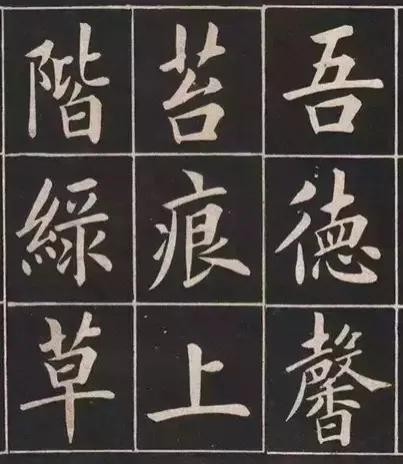 吾德馨
苔痕上
階綠草